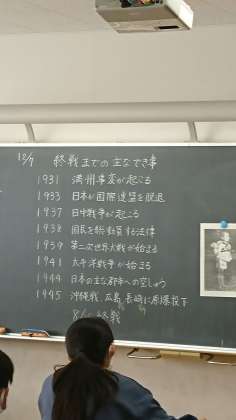 12/7 終戦までの主なでき事
1931 満州事変が起こる
1933 日本が国際連盟を脱退
1937 日中戦争が起こる
1938 国民を総動員する法律
1939 第二次世界大戦が始まる
1941 太平洋戦争が始まる
1944 日本の主な都市への空しゅう
1945 沖縄戦、広島、長崎に原爆投下
終戦